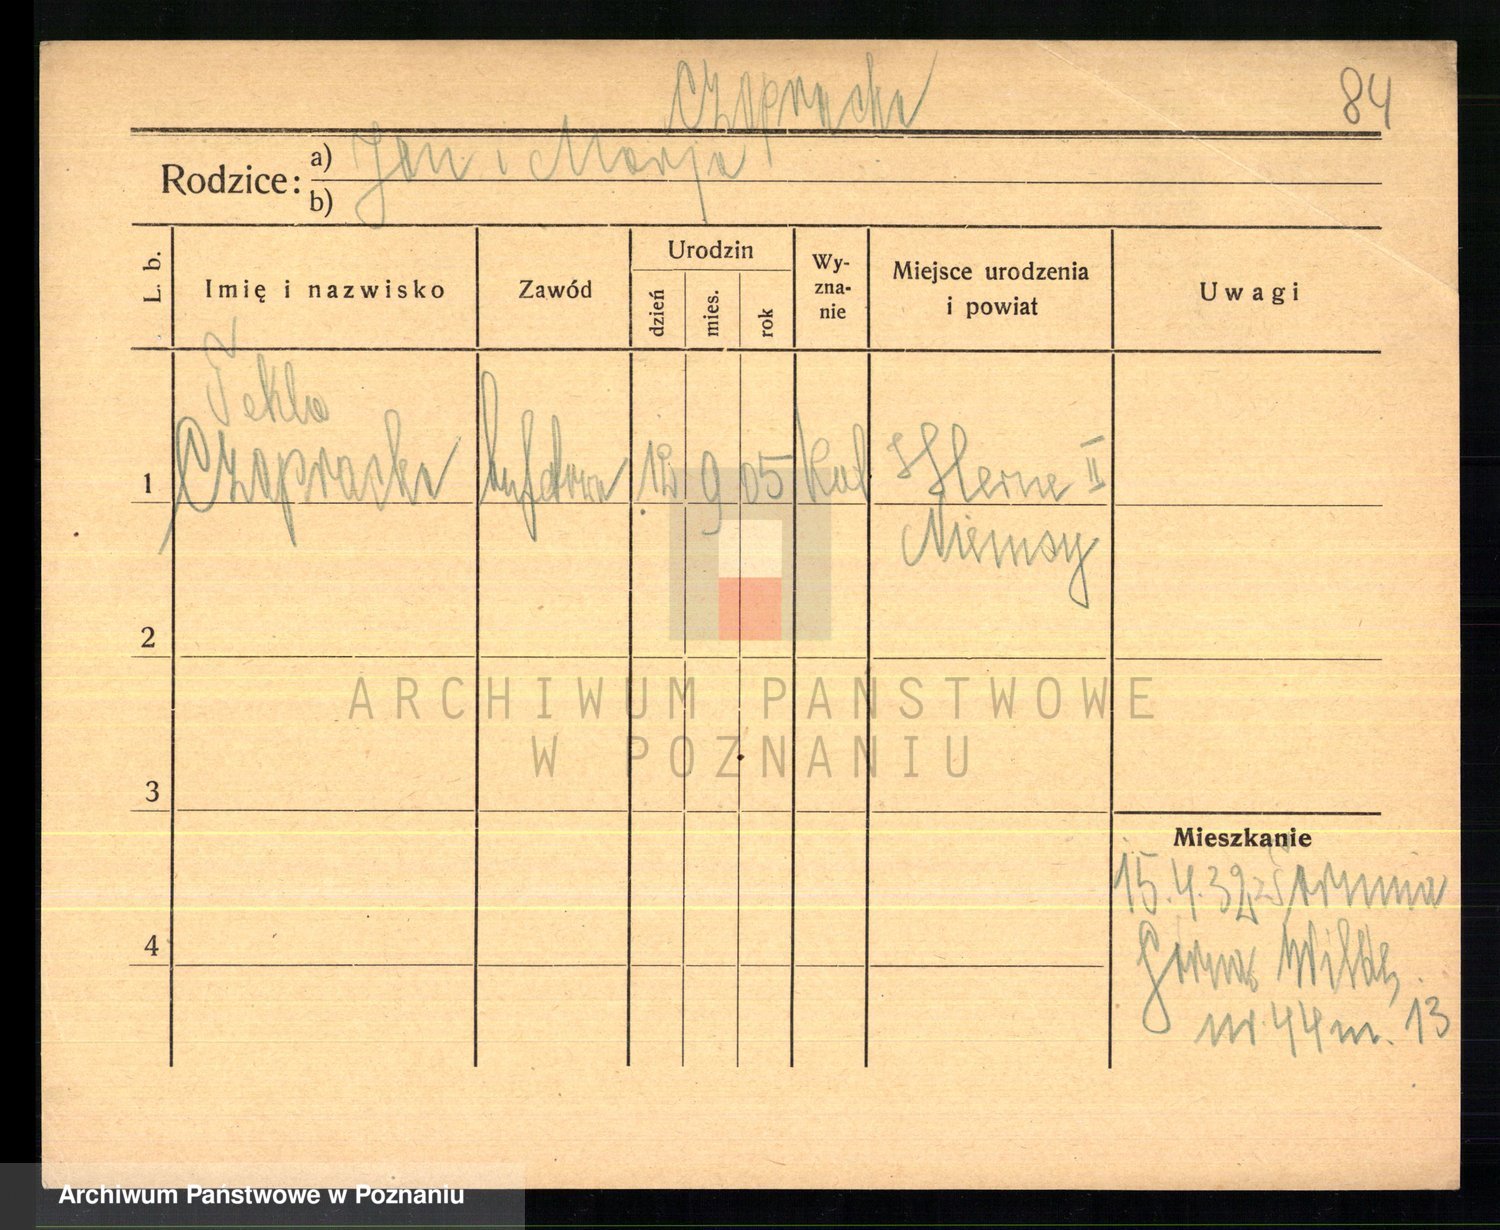 Czapracka
84
Rodzice: a) Jan i Marja
b)
L. b.
Imię i nazwisko
Zawód
Urodzin
dzień
mies.
rok
Wy-
zna-
nie
Miejsce urodzenia
i powiat
Uwagi
Tekla
1 Czapracka bufetowa 12 9 05 Kat Herne II
Niemcy
2
ARCHIWUM PAŃSTWOWE
W POZNANIU
3
Mieszkanie
15.4.32 z Torunia
4 Górna Wilda
nr 44 m. 13
Archiwum Państwowe w Poznaniu